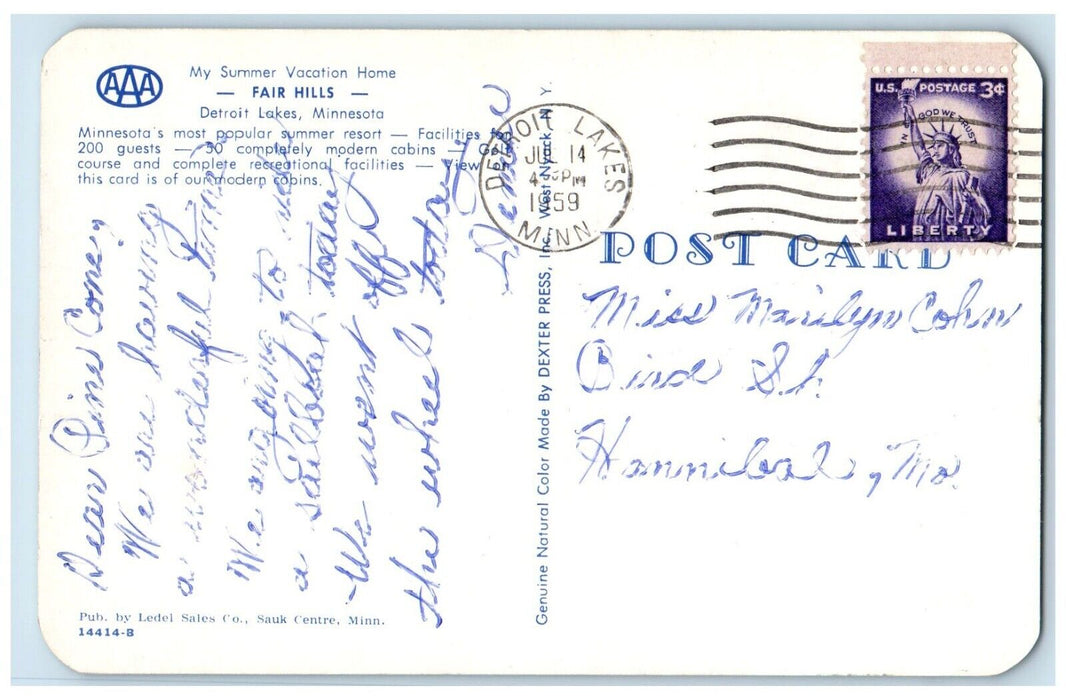 AAA
My Summer Vacation Home
— FAIR HILLS —
Detroit Lakes, Minnesota
Minnesota's most popular summer resort — Facilities for
200 guests — 50 completely modern cabins — Golf
course and complete recreational facilities — View on
this card is of our modern cabins.
Dear Pine Cone,
We are having
a wonderful time
We are going to ride
a sailboat today
We went off
the wheel
Pub. by Ledel Sales Co., Sauk Centre, Minn.
14414-B
Genuine Natural Color Made By DEXTER PRESS, Inc. West Nyack, N. Y.
DETROIT LAKES
JUL 14
PM
1959
MINN.
U.S. POSTAGE 3¢
IN GOD WE TRUST
LIBERTY
POST CARD
Miss Marilyn Cohn
Bird St.
Hannibal, Mo.